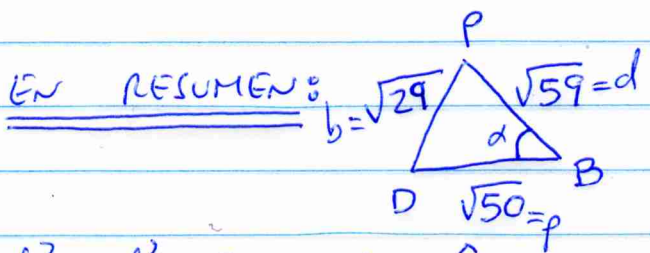 P
EN RESUMEN: b=√29 √59=d
α
D B
√50=p